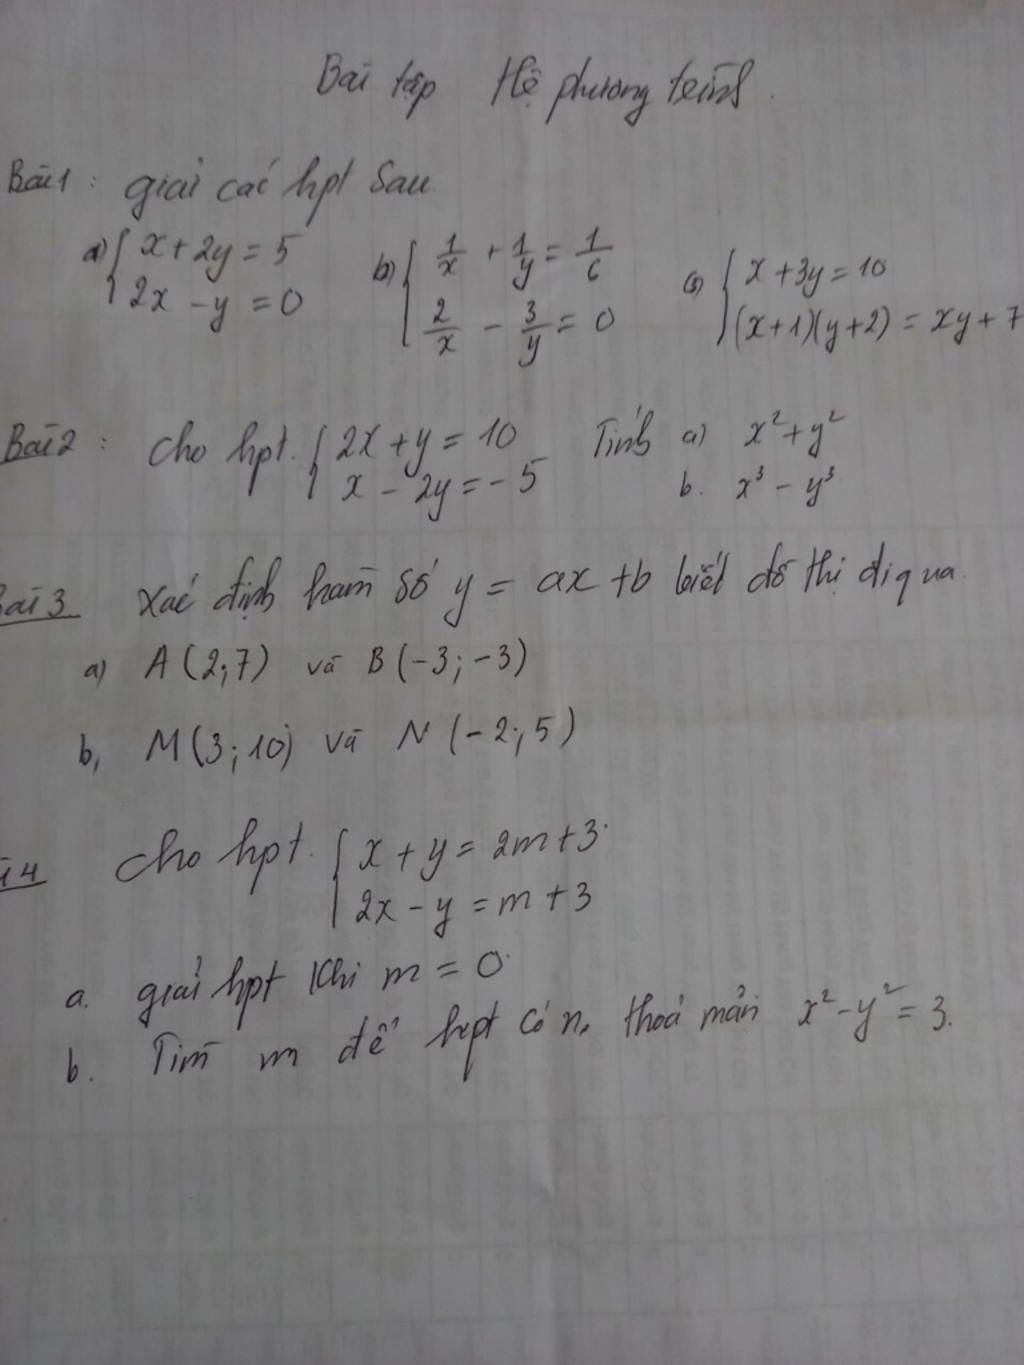 Bài tập Hệ phương trình.
Bài 1 : giải các hpt sau
a) { x + 2y = 5
2x - y = 0
b) { 1/x + 1/y = 1/6
2/x - 3/y = 0
c) { x + 3y = 10
(x+1)(y+2) = xy + 7
Bài 2 : Cho hpt. { 2x + y = 10
x - 2y = -5
Tính a) x² + y²
b. x³ - y³
Bài 3 Xác định hàm số y = ax + b biết đồ thị đi qua.
a) A(2;7) và B(-3;-3)
b, M(3;10) và N(-2;5)
ài 4 Cho hpt. { x + y = 2m + 3
2x - y = m + 3
a. giải hpt khi m = 0.
b. Tìm m để hpt có n. thoả mản x² - y² = 3.